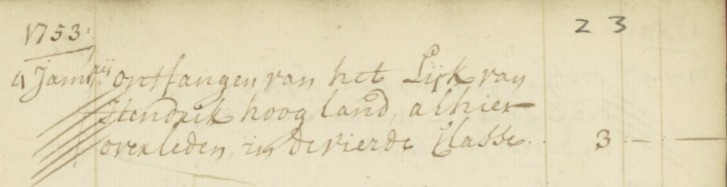 1753: 23
4 Januarij ontfangen van het Lijk van
Hendrik hoogland, alhier
overleden, in de vierde Classe. 3 - —